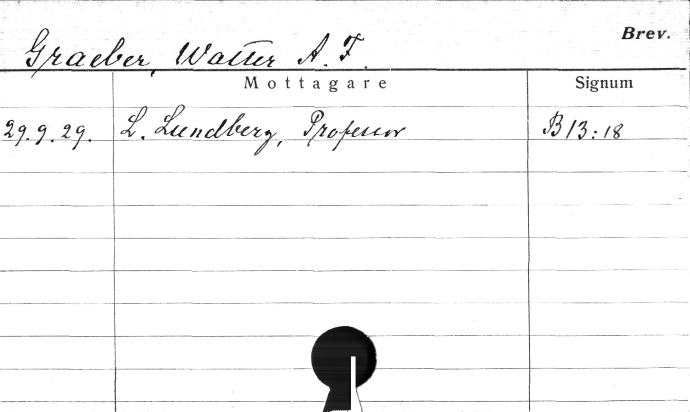 Brev.
Graeber, Walter A. F.
Mottagare Signum
29.9.29. L. Lundberg, Professor B13:18